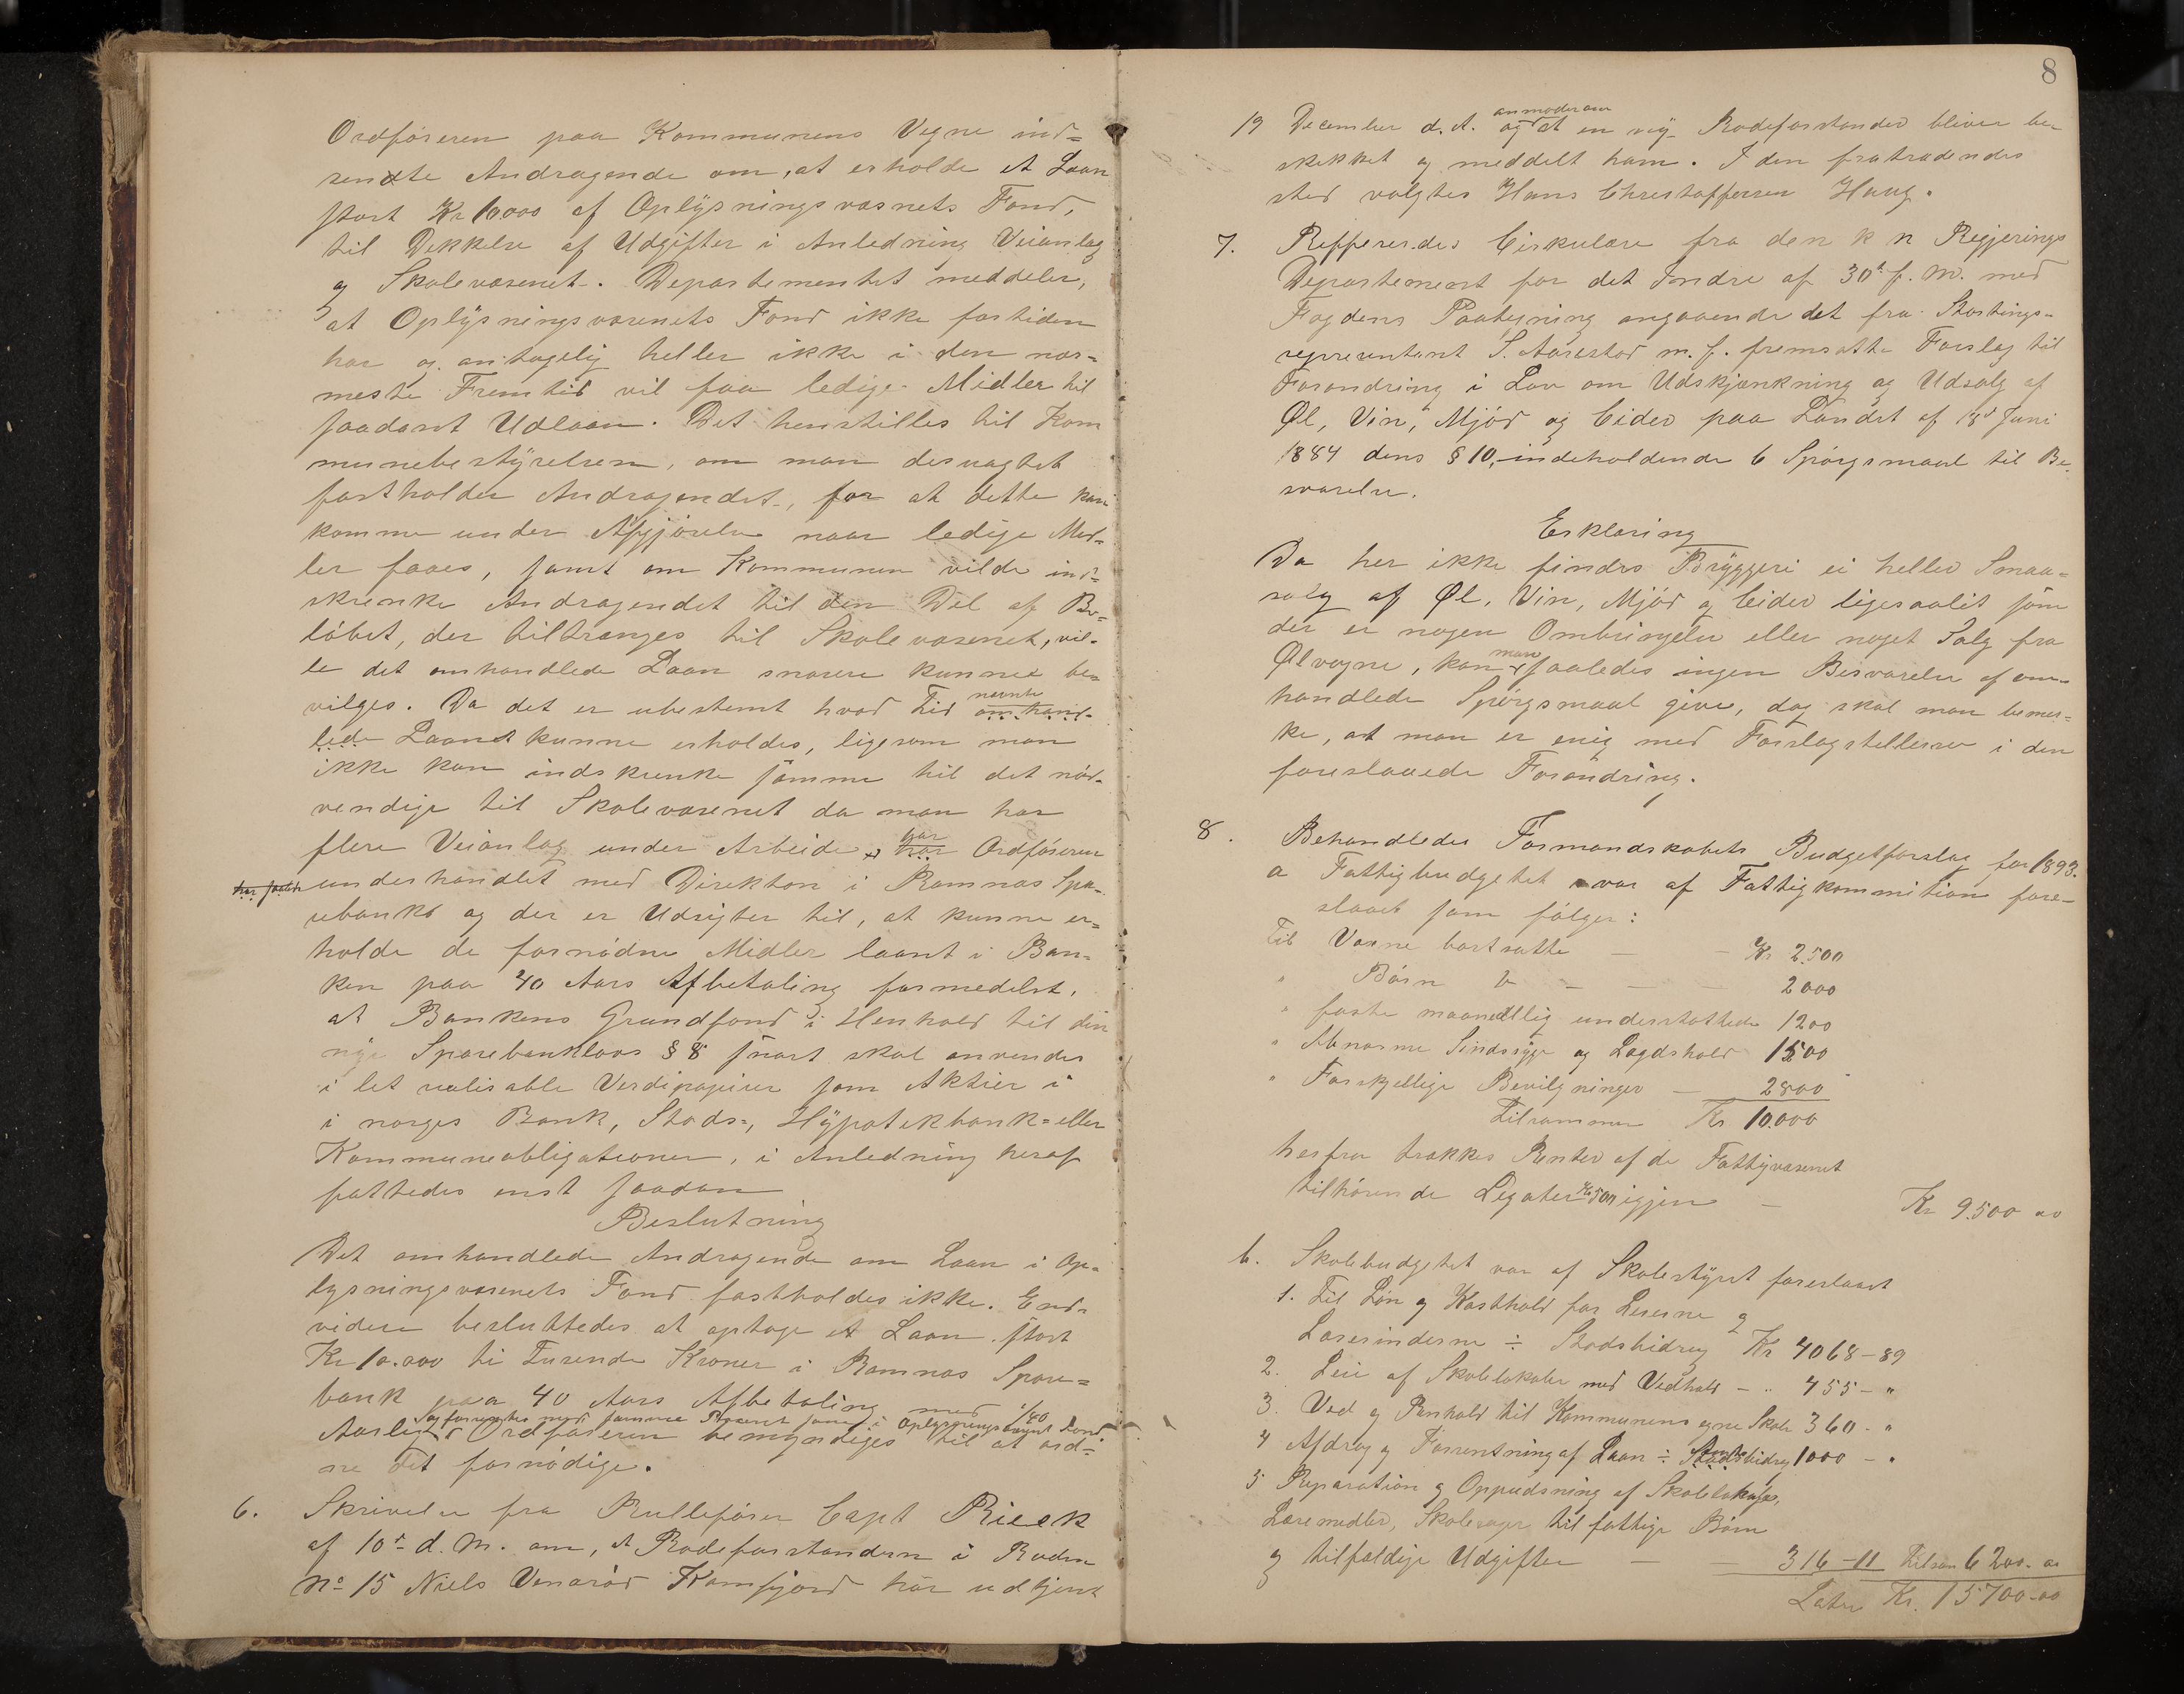 Ordføreren paa Kommunens Vegne ind=
sendte Andragende om, at erholde et Laan
stort Kr 10000 af Oplysningsvæsnets Fond,
til Dekkelse af Udgifter i Anledning Veianlæg
og Skolevæsenet. Departementet meddeler,
at Oplysningsvæsenets Fond ikke fortiden
har og antagelig heller ikke i den nær=
meste Fremtid vil faa ledige Midler til
saadant Udlaan. Det henstilles til Kom
munebestyrelsen, om man desuagtet
fastholder Andragendet, for at dette kan
komme under Afgjørelse naar ledige Mid=
ler faaes, samt om Kommunen vilde ind=
skrenke Andragendet til den Del af Be=
løbet, der tiltrænges til Skolevæsenet, vil=
le det omhandlede Laan snarere kunne be=
vilges. Da det er ubestemt hvad Tid omhand= nævnte
lede Laan kunne erholdes, ligesom man
ikke kan indskrenke samme til det nød=
vendige til Skolevæsenet da man har
flere Veianlæg under Arbeide, har har Ordføreren
underhandlet med Direktion i Ramnæs Spa=
rebank og der er Udsigter til, at kunne er=
holde de fornødne Midler laant i Ban=
ken paa 40 Aars Afbetaling formedelst,
at Bankens Grundfond i Henhold til den
nye Sparebanklovs § 8 snart skal anvendes
i let realisable Verdipapirer som Aktier i
i norges Bank, Stads=, Hypotekbank= eller
Kommuneobligationer, i Anledning heraf
fattedes enst saadan
Beslutning
Det omhandlede Andragende om Laan i Op=
lysningsvæsenets Fond fastholdes ikke. End=
videre besluttedes at optage et Laan stort
Kr 10.000 ti Tusende Kroner i Ramnæs Spare=
bank paa 40 Aars Afbetaling med 1/40
og forrentes med samme Procent som i Oplysningsvæsnets Fond.
Aarligt Ordføreren bemyndiges til at ord=
ne det fornødige.
6. Skrivelse fra Rullefører Capt Rieck
af 10de d. M. om, at Rodeforstanderen i Roden
No 15 Niels Venerød Ramfjord har udtjent
8
19 December d. A. og anmoder om at en ny Rodeforstander bliver be=
skikket og meddelt ham. I den fratrædendes
sted valgtes Hans Christoffersen Haug.
7. Reffereredes Cirkulære fra den k n Regjerings
Departement for det Indre af 30te f. M. med
Fogdens Paategning angaaende det fra Stortings=
representent S. Aarestad m. fl. fremsatte Forslag til
Forandring i Lov om Udskjænkning og Udsalg af
Øl, Vin, Mjød og Cider paa Landet af 18de Juni
1884 dens § 10, indeholdende 6 Spørgsmaal til Be=
svarelse.
Erklæring
Da her ikke findes Bryggeri ei heller Smaa=
salg af Øl, Vin, Mjød og Cider ligesaalit som
der er nogen Ombringelse eller noget Salg fra
Ølvogne, kan man saaledes ingen Besvarelse af om=
handlede Spørgsmaal give, dog skal man bemer=
ke, at man er enig med Forslagstellerne i den
foreslaaede Forandring.
8. Behandledes Formandskabets Budgetforslag for 1893.
a Fattigbudgettet var af Fattigkommition fore=
slaaet som følger:
Til Voxne bortsatte — — Kr 2.500
" Børn do — — — 2000
" faste maanedlig understøttede 1200
" Abnorme Sindssyge og Lægdshold 1500
" Forskjellige Bevilgninger — 2800
Tilsammen Kr 10.000
herfra trækkes Renter af de Fattigvæsenet
tilhørende Legater Kr 500 igjen — Kr 9.500 00
b. Skolebudgetet var af Skolestyret foreslaaet
1. Til Løn og Kosthold for Læserne og
Læserinderne ÷ Stadsbidrag Kr 4068–89
2. Leie af Skolelokaler med Vedhold — " 455 – "
3. Ved og Renhold til Kommunens egne Skoler 360 – "
4 Afdrag og Forrentning af Laan ÷ Stadsbidrag 1000 – "
5 Reparation og Oppudsning af Skolelokaler,
Læremidler, Skolesager til fattige Børn
og tilfældige Udgifter — — 316–11 Tilsam 6200. 00
Latus Kr. 15700–00